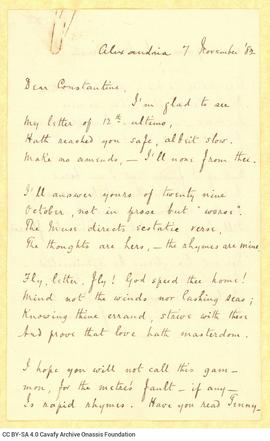 Alexandria 7 November '82
Dear Constantine,
I'm glad to see
My letter of 12th ultimo,
Hath reached you safe, albeit slow.
Make no amends, — I'll none from thee.
I'll answer yours of twenty nine
October, not in prose but "worse".
The Muse directs ecstatic verse,
The thoughts are hers, — the rhymes are mine
Fly, letter, fly! God speed thee home!
Mind not the winds nor lashing seas;
Knowing thine errand, strive with these
And prove that love hath masterdom.
I hope you will not call this gam-
mon, for the metre's fault — if any —
Is rapid rhymes. Have you read Tenny-
CC BY-SA 4.0 Cavafy Archive Onassis Foundation